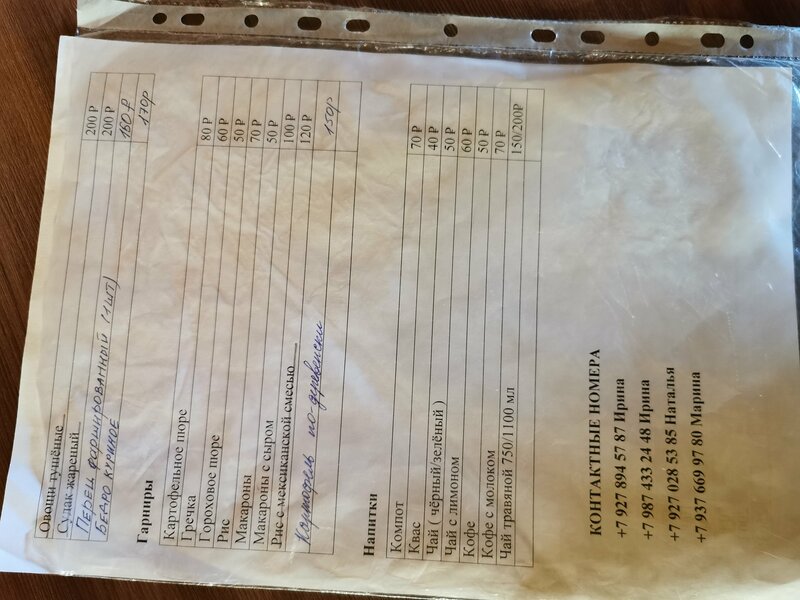 Овощи тушёные 200 ₽
Судак жареный 200 ₽
Перец фаршированный (1шт) 160 ₽
Бедро куриное 170р
Гарниры
Картофельное пюре 80 ₽
Гречка 60 ₽
Гороховое пюре 50 ₽
Рис 70 ₽
Макароны 50 ₽
Макароны с сыром 100 ₽
Рис с мексиканской смесью 120 ₽
Картофель по-деревенски 150р
Напитки
Компот 70 ₽
Квас 40 ₽
Чай ( чёрный/зелёный ) 50 ₽
Чай с лимоном 60 ₽
Кофе 50 ₽
Кофе с молоком 70 ₽
Чай травяной 750/1100 мл 150/200₽
КОНТАКТНЫЕ НОМЕРА
+7 927 894 57 87 Ирина
+7 987 433 24 48 Ирина
+7 927 028 53 85 Наталья
+7 937 669 97 80 Марина